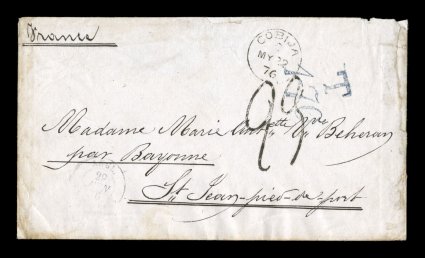 France
COBIJA
MY 22
76
T
Madame Marie Ant.ette Vve Beheran
par Bayonne
St Jean-pied-de-port